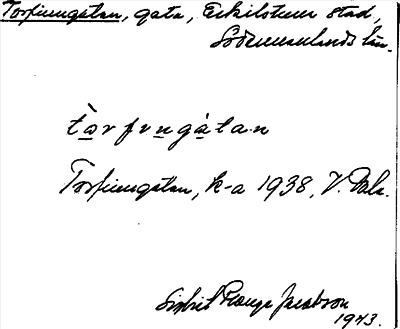 Torfinngatan, gata, Eskilstuna stad,
Södermanlands län.
tòrfıngátan
Torfinngatan, k-a 1938, V. Dala.
Sigbrit Plænge Jacobson
1973.